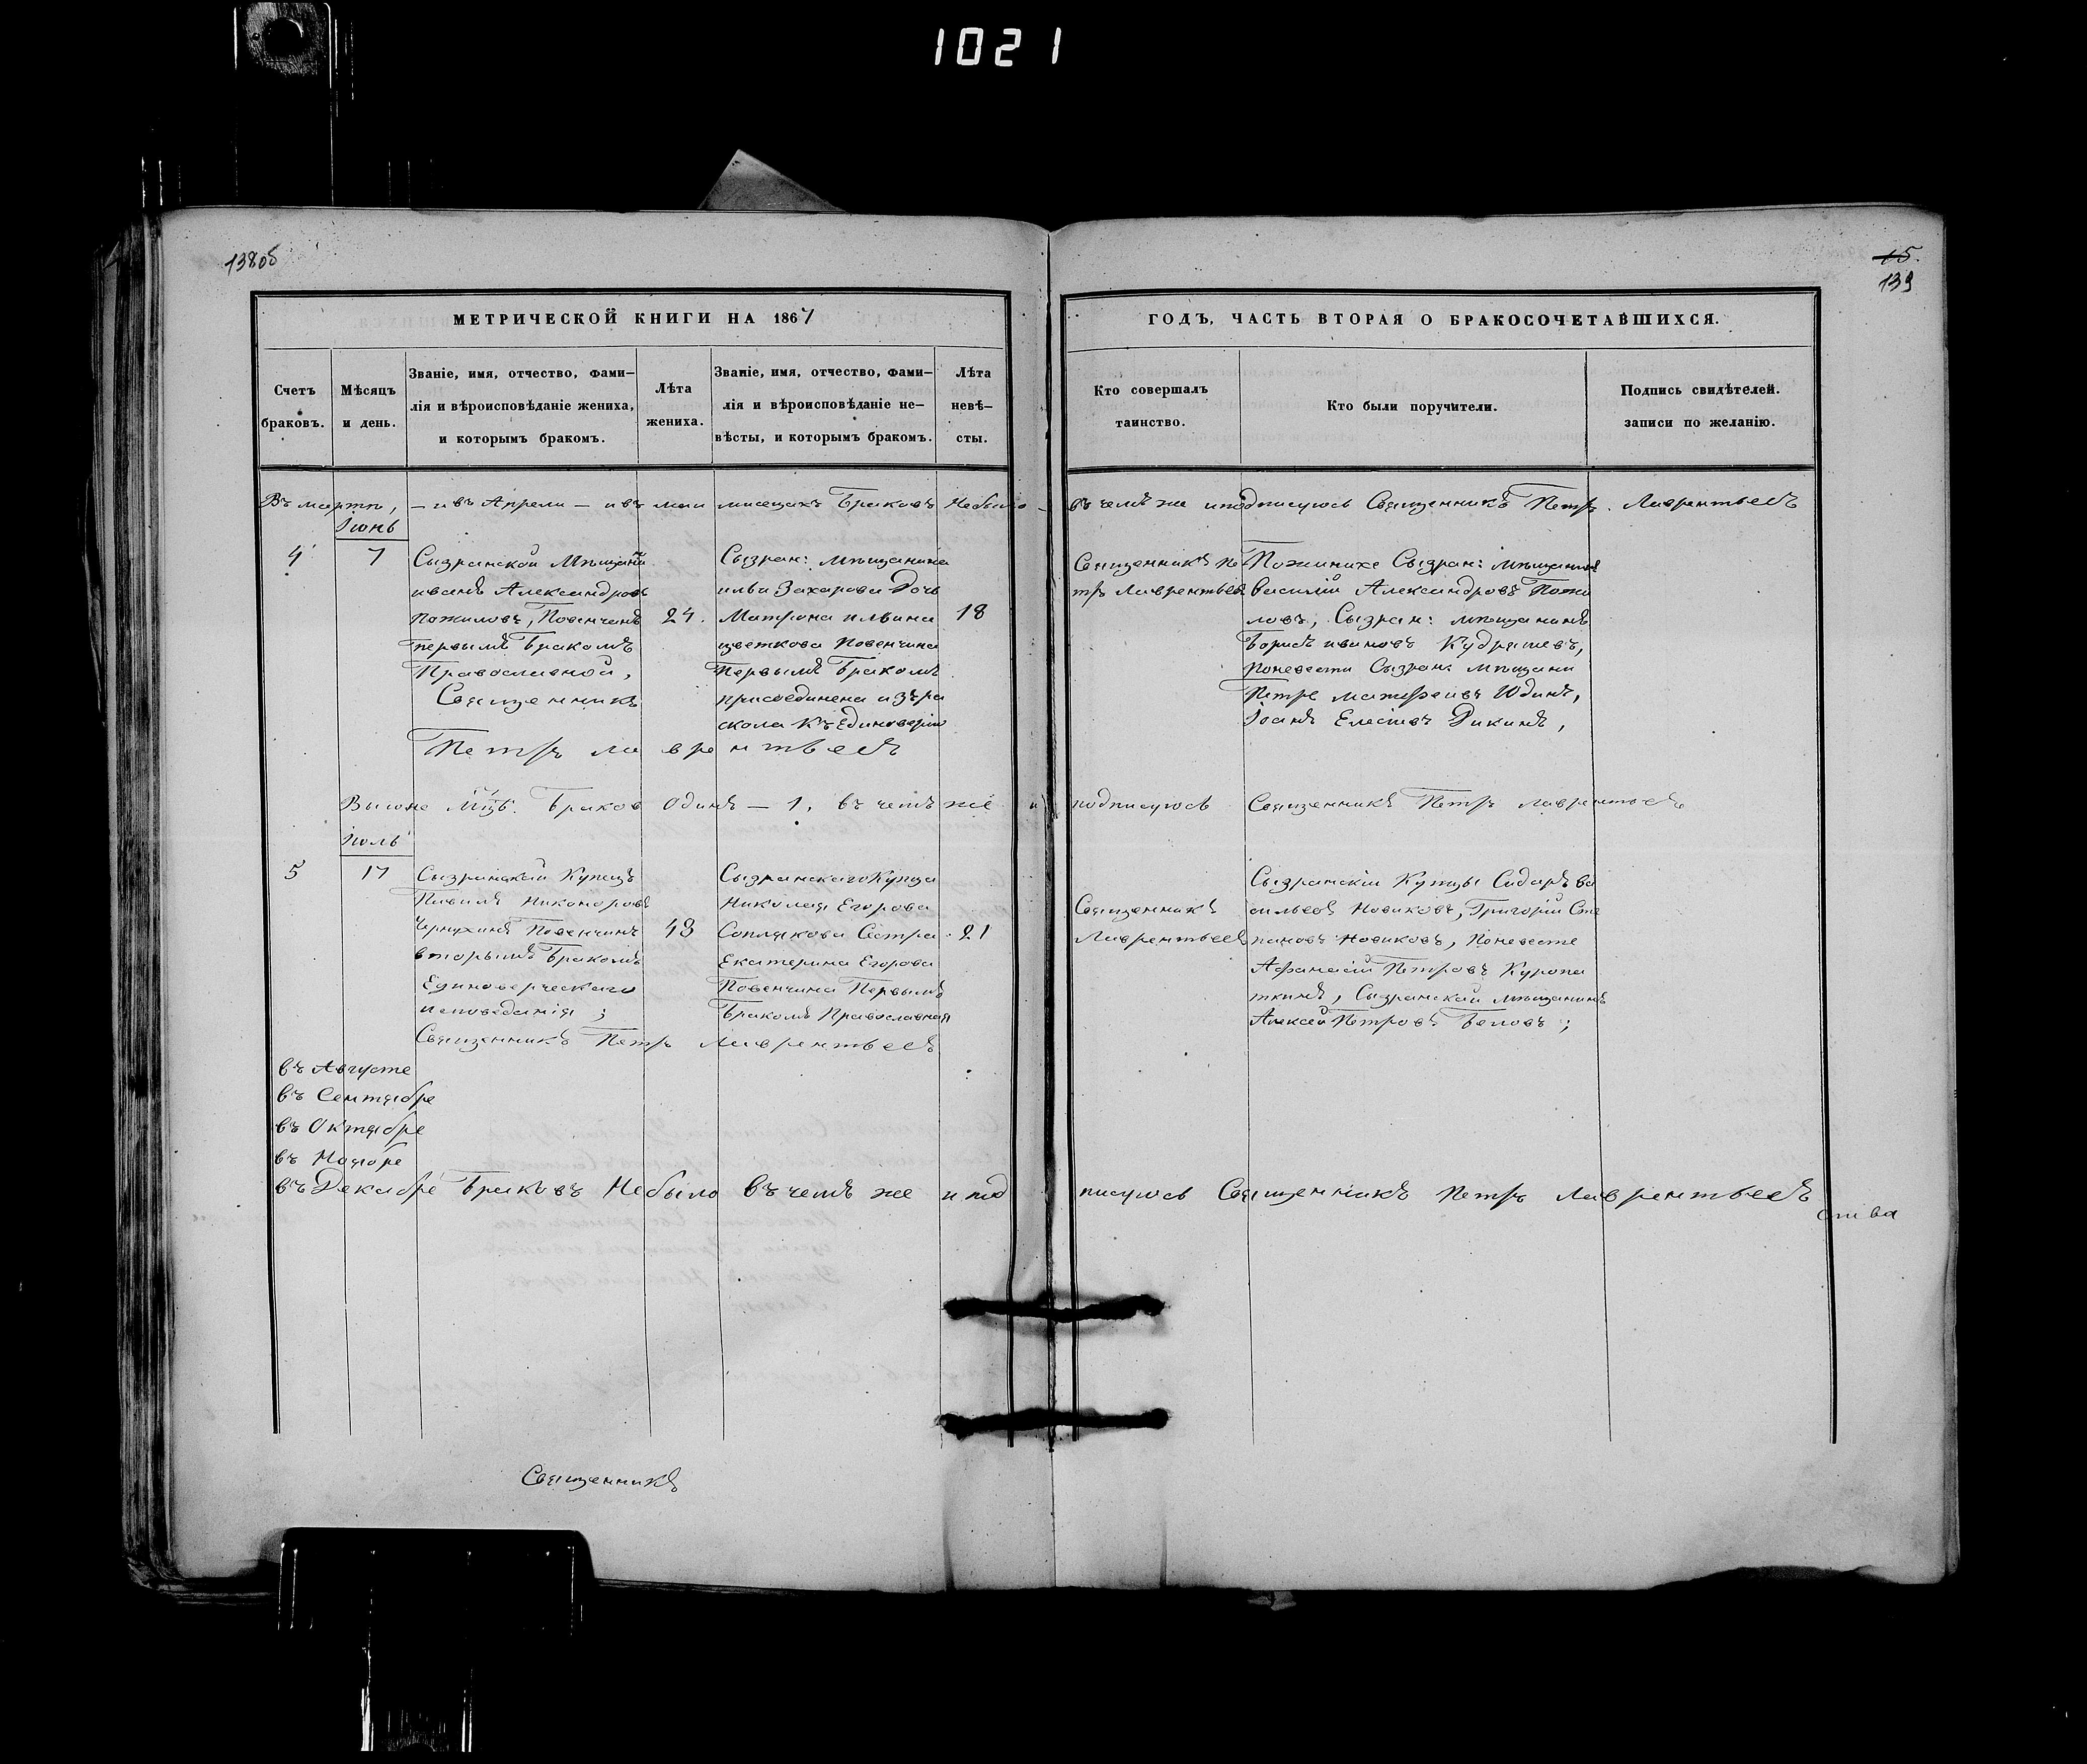 1021
138об
15.
139
МЕТРИЧЕСКОЙ КНИГИ НА 1867
ГОДЪ, ЧАСТЬ ВТОРАЯ О БРАКОСОЧЕТАВШИХСЯ.
Счетъ браковъ.
Мѣсяцъ и день.
Званіе, имя, отчество, фами-
лія и вѣроисповѣданіе жениха,
и которымъ бракомъ.
Лѣта
жениха.
Званіе, имя, отчество, фами-
лія и вѣроисповѣданіе не-
вѣсты, и которымъ бракомъ.
Лѣта
невѣ-
сты.
Кто совершалъ
таинство.
Кто были поручители.
Подпись свидѣтелей.
записи по желанію.
Въ марти, – ивъ Апрели – ивъ маи мисецахъ Браковъ Небыло – въ чемъ же иподписуюсь Священникъ Петръ Лаврентьевъ
Iюнь
4
7
Сызранской Мѣщани
иванъ Александровъ
Пожиловъ, Повенчанъ
первымъ Бракомъ
Православной,
Священникъ
24.
Сызран: мѣщанина
ильи Захарова Дочь
Матрона ильина
цветкова Повенчина
Первымъ Бракомъ
присоединена изъ ра
скола Къ Единоверiю
18
Петръ лаврентьевъ
Священникъ Пе
тръ Лаврентьевъ
Пожинихе Сызран: мѣщанинъ
Василiй Александровъ Пожи
ловъ, Сызран: мѣщанинъ
Борисъ ивановъ Кудряшевъ,
Поневести Сызран: мѣщани
Петръ матфеивъ Юдинъ,
Iоанъ Елесѣивъ Дикинъ,
Виюне Мцъ. Браков Одинъ – 1, въ чемъ же и подписуюсь Священникъ Петръ лаврентьевъ
Iюль
5
17
Сызранскай Купецъ
Павилъ Никоноровъ
Чернухинъ Повенчинъ
вторымъ Бракомъ
Единоверческаго
исповеданiя ;
43
Сызранскаго Купца
Николая Егорова
Соплякова Сестра
Екатерина Егорова
Повенчина Первымъ
Бракомъ Православная
21
Священникъ Петръ Лаврентьевъ
Священникъ
Лаврентьевъ
Сызранскiи Купцы Сидаръ Ва
сильевъ Новиковъ, Григорiй Сте
пановъ Новиковъ, Поневесте
Афанасiй Петровъ Куропа
ткинъ, Сызранскай мѣщанинъ
Алексей Петровъ Беловъ ;
въ Августе
въ Сентябре
въ Октябре
въ Ноябре
въ Декабре Браковъ Небыло въ чемъ же и под писуюсь Священникъ Петръ Лаврентьевъ
Священникъ